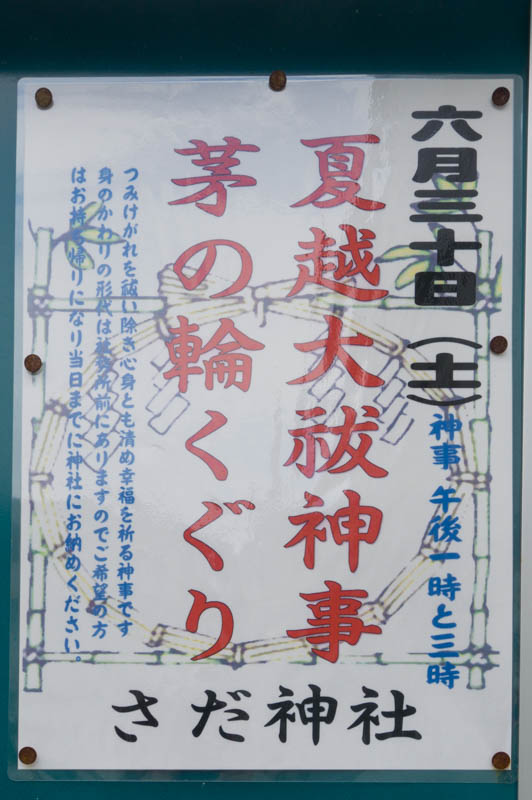 六月三十日(土)
神事 午後一時と三時
夏越大祓神事
茅の輪くぐり
つみけがれを祓い除き心身とも清め幸福を祈る神事です
身のかわりの形代は社務所前にありますのでご希望の方
はお持ち帰りになり当日までに神社にお納めください。
さだ神社